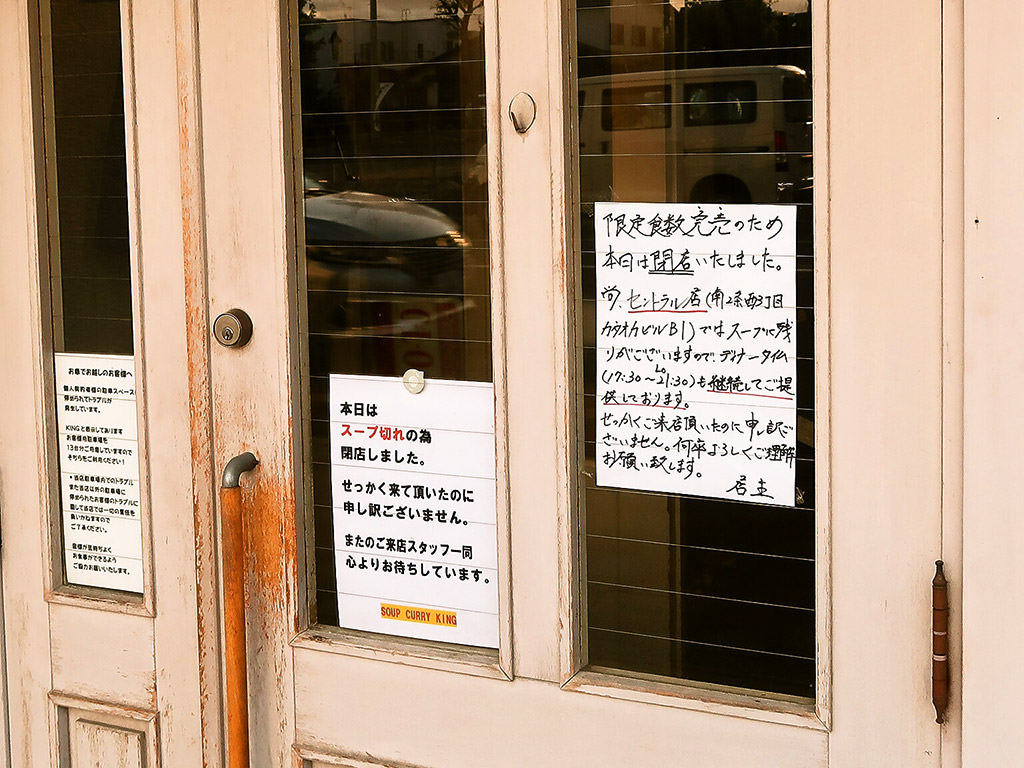 お車でお越しのお客様へ
個人契約者様の駐車スペースに
停められてトラブルが
発生しています。
KINGと表示してあります
お客様用駐車場を
13台分ご用意していますので
そちらをご利用ください!
*当店駐車場内でのトラブル
また当店以外の駐車場に
停められたお客様のトラブルに
関して当店では一切の責任を
負いかねますので
ご了承ください。
皆様が気持ちよく
お食事ができるよう
ご協力お願いいたします。
本日は
スープ切れの為
閉店しました。
せっかく来て頂いたのに
申し訳ございません。
またのご来店スタッフ一同
心よりお待ちしています。
SOUP CURRY KING
限定食数完売のため
本日は閉店いたしました。
尚、セントラル店(南2条西3丁目
カタオカビルB1)ではスープに残
りがございますので、ディナータイム
(17:30〜21:30)も継続してご提
LO
供しております。
せっかくご来店頂いたのに申し訳ご
ざいません。何卒よろしくご理解
お願い致します。
店主